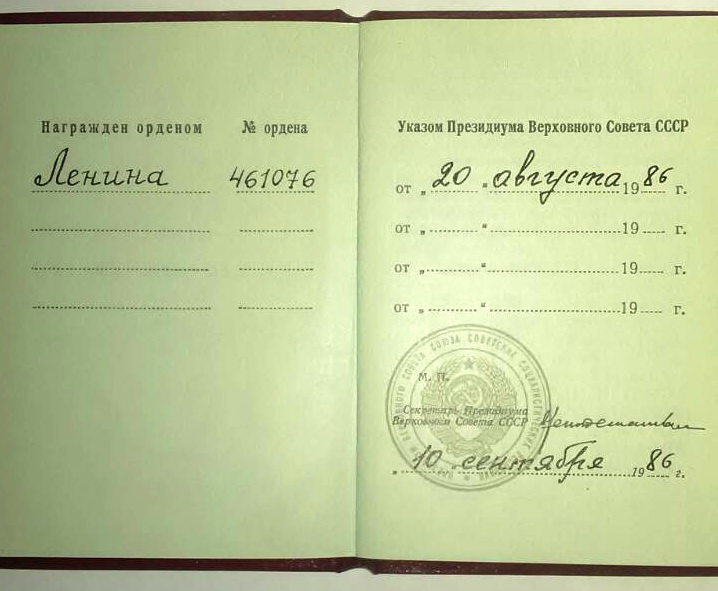 Награжден орденом № ордена
Ленина 461076
Указом Президиума Верховного Совета СССР
от „ 20 “ августа 1986 г.
от „ “ 19 г.
от „ “ 19 г.
от „ “ 19 г.
М. П.
Секретарь Президиума
Верховного Совета СССР
„ 10 “ сентября 1986 г.